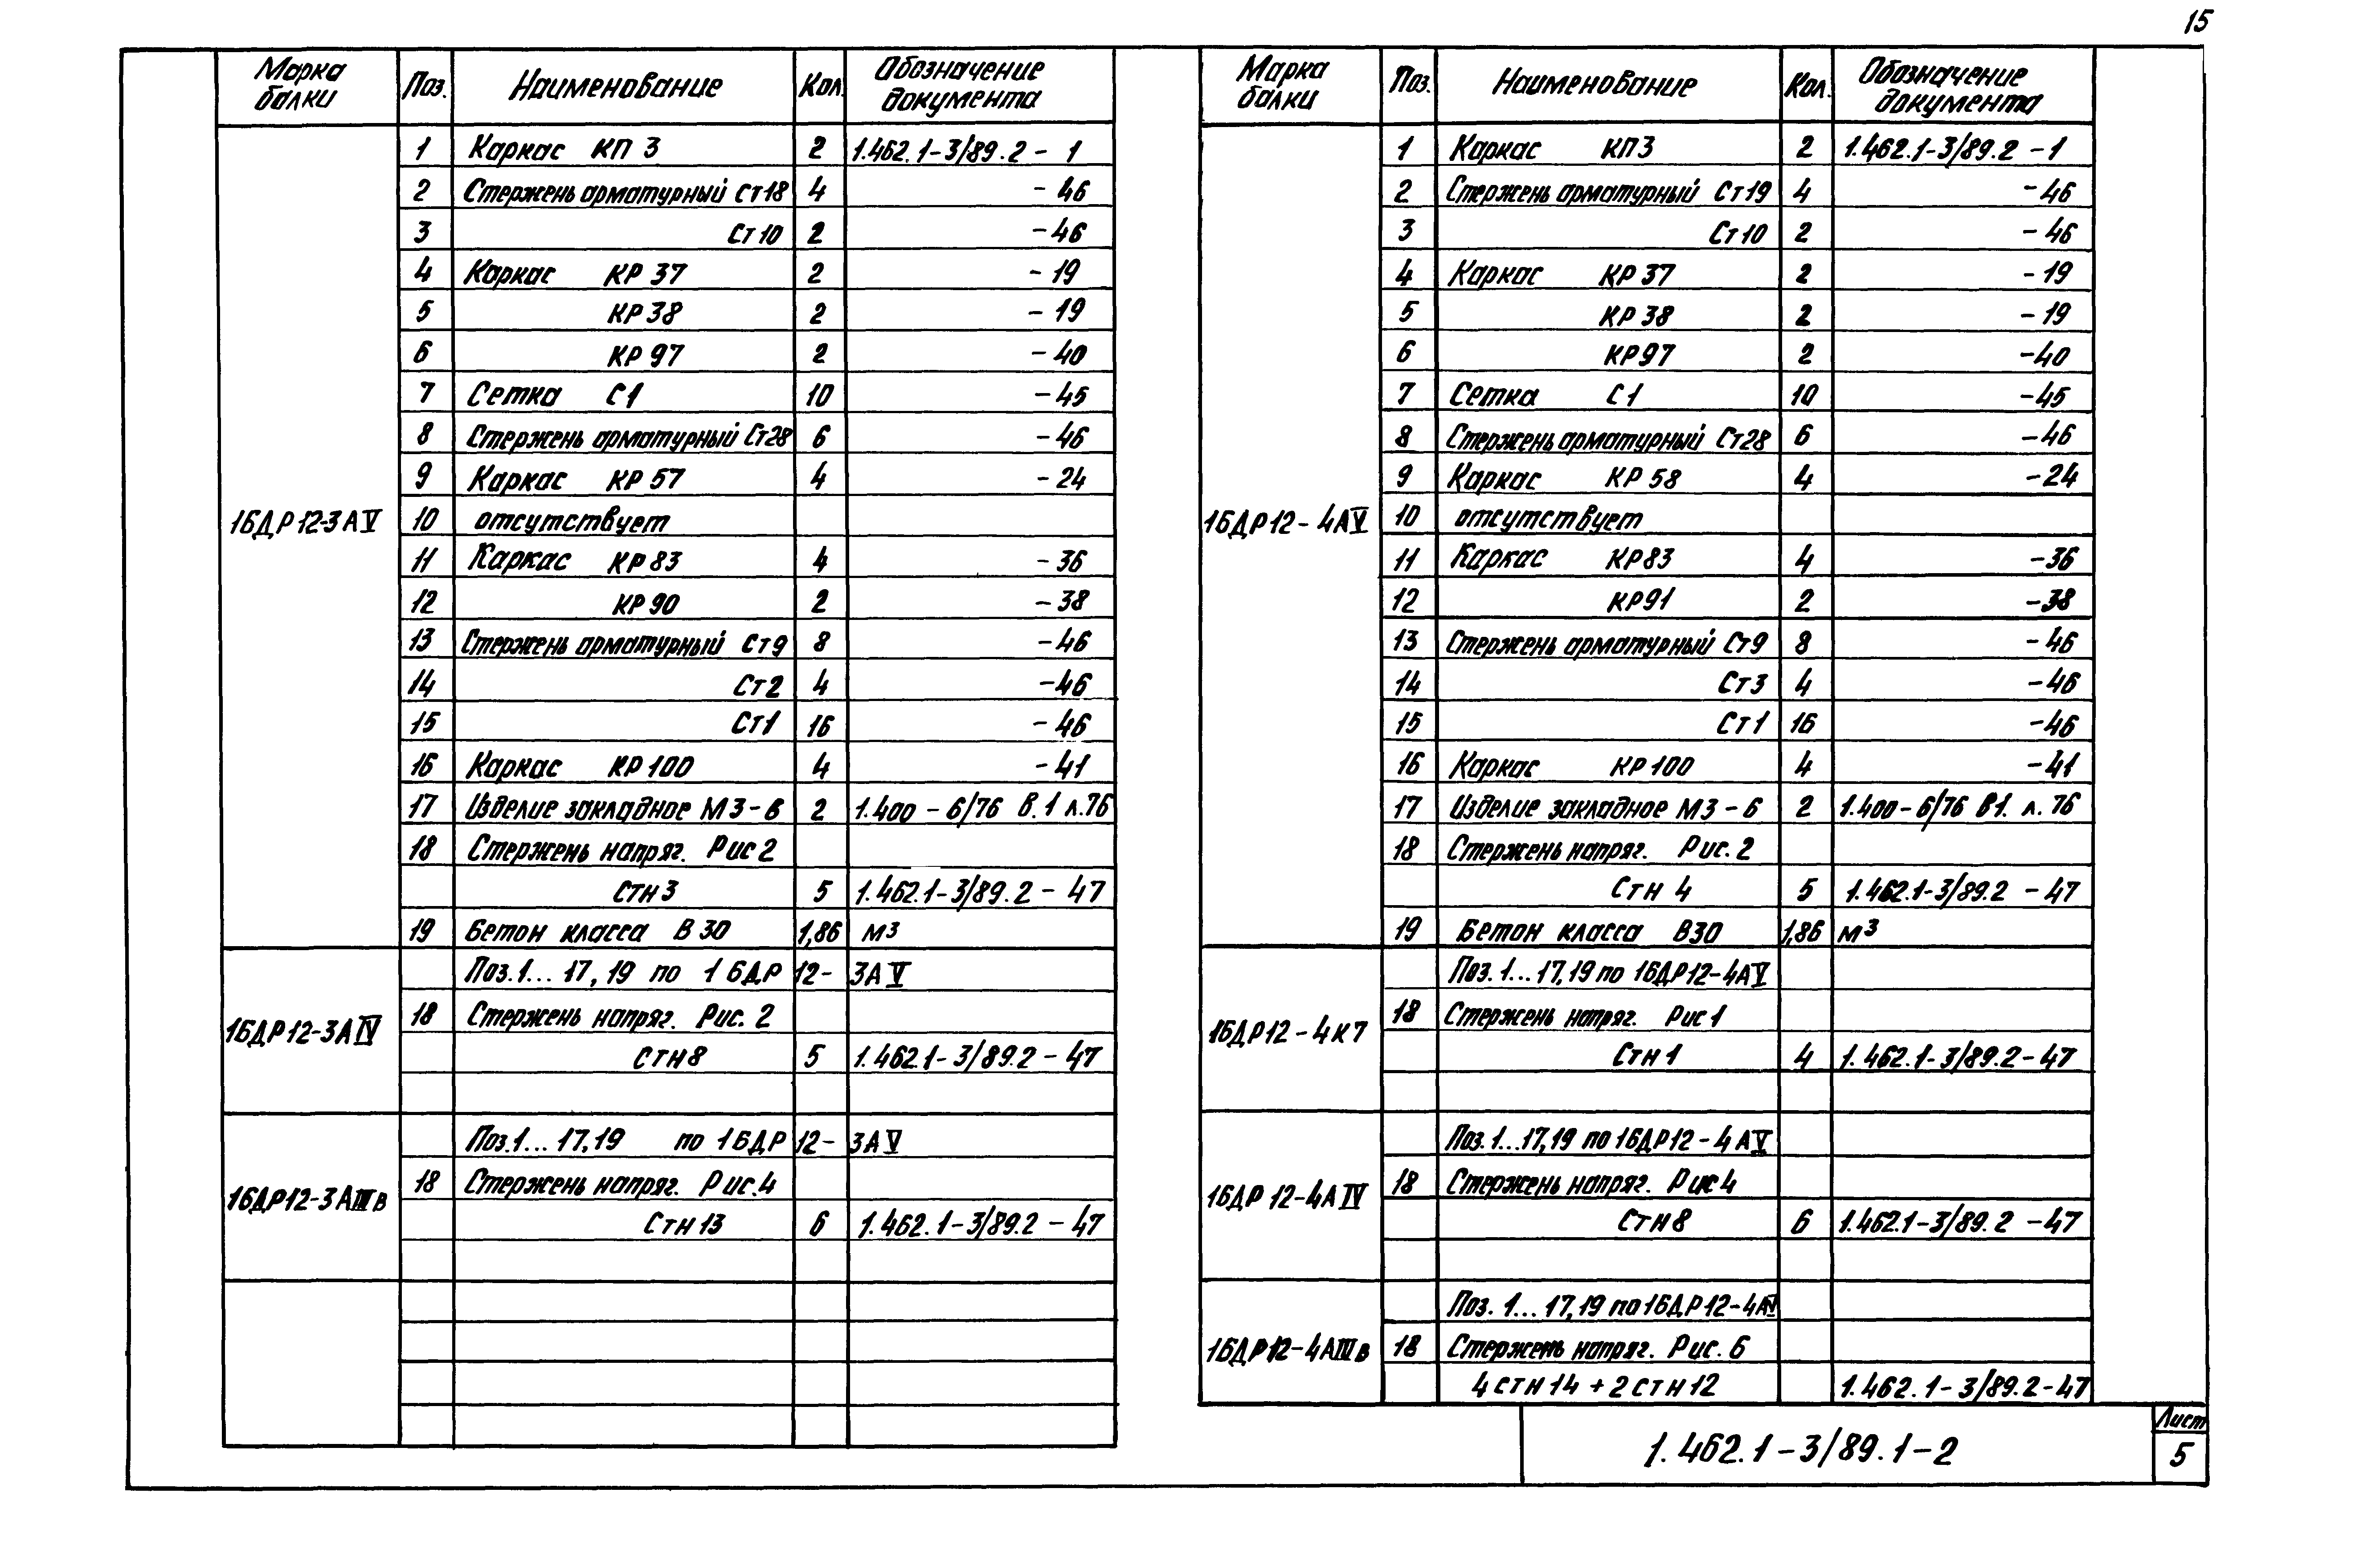 15
Марка балки Поз. Наименование Кол. Обозначение документа
1 Каркас КП 3 2 1.462.1-3/89.2 - 1
2 Стержень арматурный Ст18 4 - 46
3 Ст10 2 - 46
4 Каркас КР 37 2 - 19
5 КР 38 2 - 19
6 КР 97 2 - 40
7 Сетка С1 10 - 45
8 Стержень арматурный Ст28 6 - 46
9 Каркас КР 57 4 - 24
1БДР12-3АV 10 отсутствует
11 Каркас КР 83 4 - 36
12 КР 90 2 - 38
13 Стержень арматурный Ст9 8 - 46
14 Ст2 4 - 46
15 Ст1 16 - 46
16 Каркас КР 100 4 - 41
17 Изделие закладное М3-6 2 1.400 - 6/76 В.1 л.76
18 Стержень напряг. Рис 2
СТН3 5 1.462.1-3/89.2 - 47
19 Бетон класса В 30 1,86 м3
Поз.1... 17, 19 по 1БДР 12- 3АV
1БДР12-3АIV 18 Стержень напряг. Рис. 2
СТН8 5 1.462.1-3/89.2 - 47
Поз.1... 17,19 по 1БДР 12- 3АV
1БДР12-3АIIIв 18 Стержень напряг. Рис.4
СТН13 6 1.462.1-3/89.2 - 47
Марка балки Поз. Наименование Кол. Обозначение документа
1 Каркас КП3 2 1.462.1-3/89.2 - 1
2 Стержень арматурный Ст19 4 - 46
3 Ст10 2 - 46
4 Каркас КР 37 2 - 19
5 КР 38 2 - 19
6 КР97 2 - 40
7 Сетка С1 10 - 45
8 Стержень арматурный Ст28 6 - 46
9 Каркас КР 58 4 - 24
1БДР12-4АV 10 отсутствует
11 Каркас КР83 4 - 36
12 КР91 2 - 38
13 Стержень арматурный Ст9 8 - 46
14 Ст3 4 - 46
15 Ст1 16 - 46
16 Каркас КР100 4 - 41
17 Изделие закладное М3-6 2 1.400-6/76 В1. л. 76
18 Стержень напряг. Рис. 2
СТН 4 5 1.462.1-3/89.2 - 47
19 Бетон класса В30 1,86 м3
Поз. 1... 17,19 по 1БДР12-4АV
1БДР12-4К7 18 Стержень напряг. Рис 1
СТН1 4 1.462.1-3/89.2-47
Поз. 1...17,19 по 1БДР12-4АV
1БДР12-4АIV 18 Стержень напряг. Рис 4
СТН8 6 1.462.1-3/89.2 - 47
Поз. 1... 17,19 по 1БДР12-4АV
1БДР12-4АIIIв 18 Стержень напряг. Рис. 6
4 СТН 14 + 2 СТН 12 1.462.1-3/89.2-47
1.462.1-3/89.1-2
Лист
5